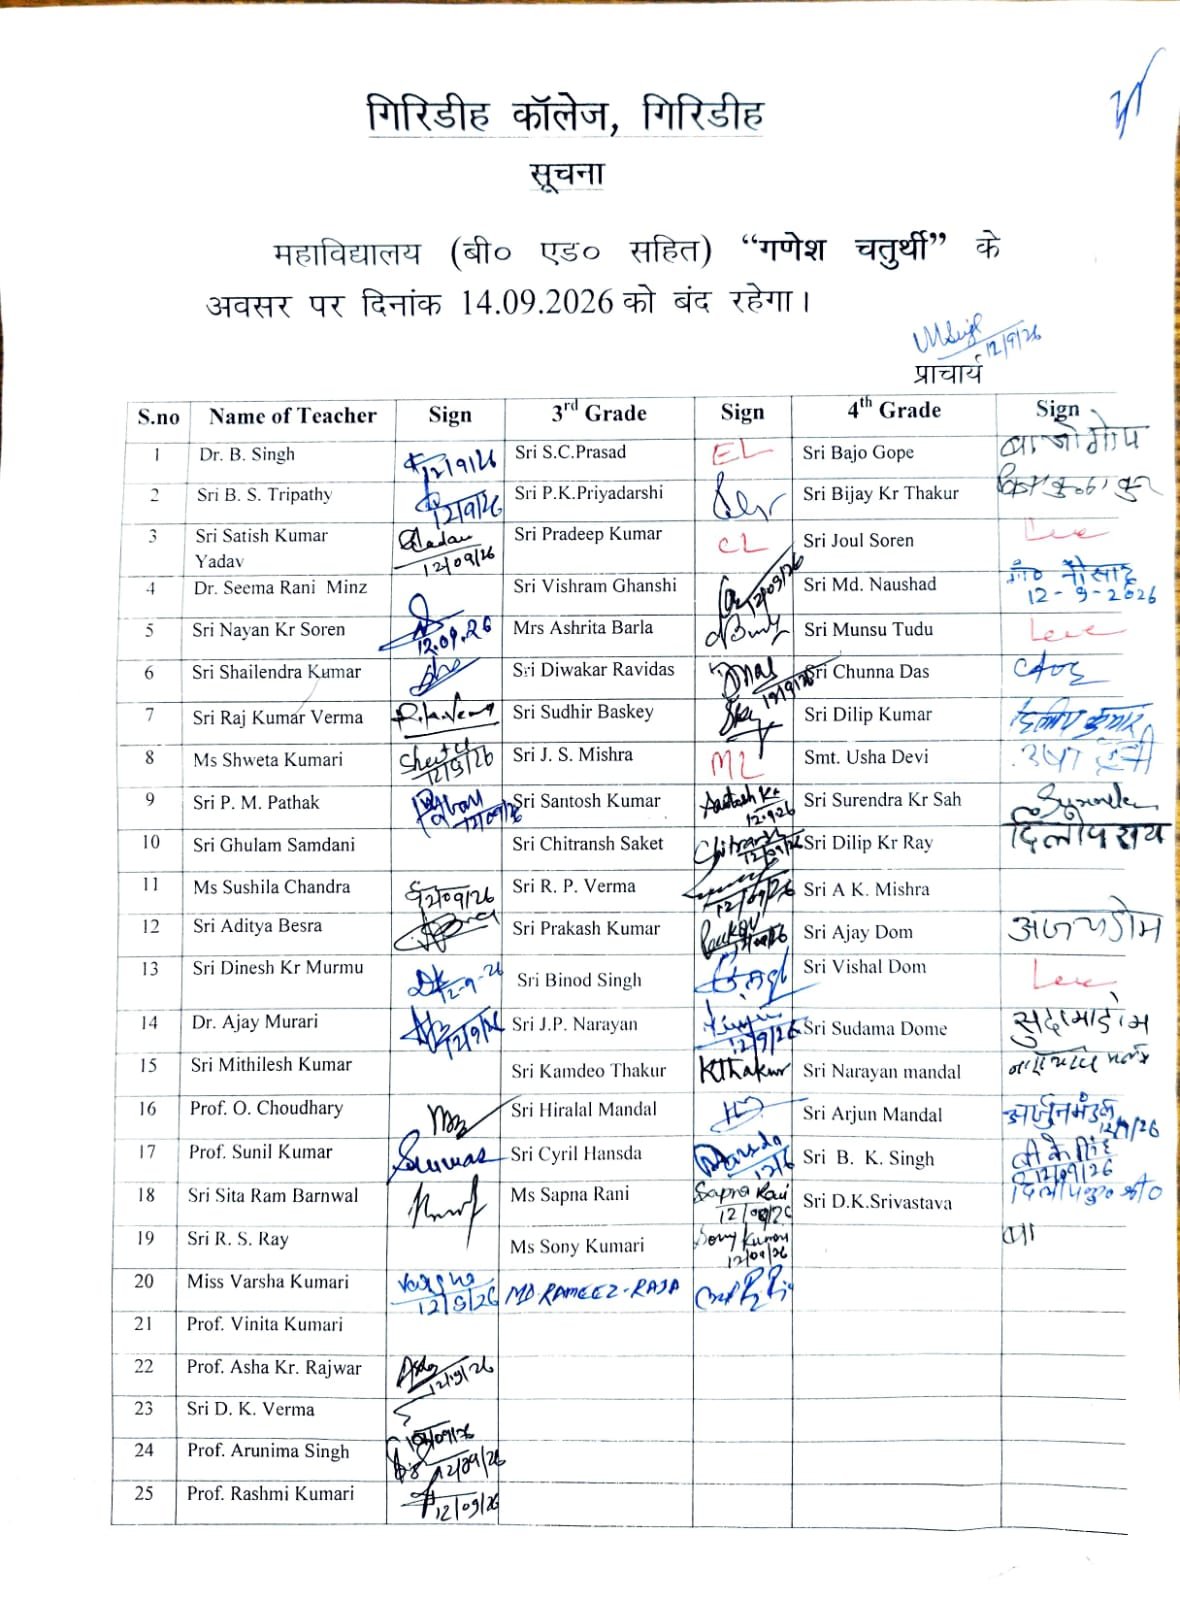 गिरिडीह कॉलेज, गिरिडीह
सूचना
महाविद्यालय (बी० एड० सहित) “गणेश चतुर्थी” के
अवसर पर दिनांक 14.09.2026 को बंद रहेगा।
12/9/26
प्राचार्य
S.no Name of Teacher Sign 3rd Grade Sign 4th Grade Sign
1 Dr. B. Singh 12/9/26 Sri S.C.Prasad EL Sri Bajo Gope बाजो गोप
2 Sri B. S. Tripathy 12/9/26 Sri P.K.Priyadarshi Sri Bijay Kr Thakur
3 Sri Satish Kumar Yadav 12/09/26 Sri Pradeep Kumar CL Sri Joul Soren
4 Dr. Seema Rani Minz Sri Vishram Ghanshi 12/09/26 Sri Md. Naushad मो० नौसाद 12-9-2026
5 Sri Nayan Kr Soren 12.09.26 Mrs Ashrita Barla Sri Munsu Tudu
6 Sri Shailendra Kumar Sri Diwakar Ravidas 12/9/26 Sri Chunna Das
7 Sri Raj Kumar Verma Sri Sudhir Baskey Sri Dilip Kumar
8 Ms Shweta Kumari 12/9/26 Sri J. S. Mishra ML Smt. Usha Devi उषा देवी
9 Sri P. M. Pathak 12/09/26 Sri Santosh Kumar 12.9.26 Sri Surendra Kr Sah
10 Sri Ghulam Samdani Sri Chitransh Saket Chitransh 12/09/26 Sri Dilip Kr Ray दिलीप राय
11 Ms Sushila Chandra 12/09/26 Sri R. P. Verma 12/09/26 Sri A K. Mishra
12 Sri Aditya Besra Sri Prakash Kumar Sri Ajay Dom अजय डोम
13 Sri Dinesh Kr Murmu 12-9-26 Sri Binod Singh Sri Vishal Dom
14 Dr. Ajay Murari 12/9/26 Sri J.P. Narayan 12/9/26 Sri Sudama Dome सुदामा डोम
15 Sri Mithilesh Kumar Sri Kamdeo Thakur KThakur Sri Narayan mandal
16 Prof. O. Choudhary Sri Hiralal Mandal Sri Arjun Mandal अर्जुन मंडल 12/9/26
17 Prof. Sunil Kumar Sri Cyril Hansda Sri B. K. Singh बी के सिंह 12/09/26
18 Sri Sita Ram Barnwal Ms Sapna Rani Sapna Rani 12/09/26 Sri D.K.Srivastava
19 Sri R. S. Ray Ms Sony Kumari Sony Kumari 12/09/26
20 Miss Varsha Kumari Varsha 12/9/26 MD. RAMEEZ-RAJA
21 Prof. Vinita Kumari
22 Prof. Asha Kr. Rajwar 12/9/26
23 Sri D. K. Verma
24 Prof. Arunima Singh 12/09/26
25 Prof. Rashmi Kumari 12/09/26